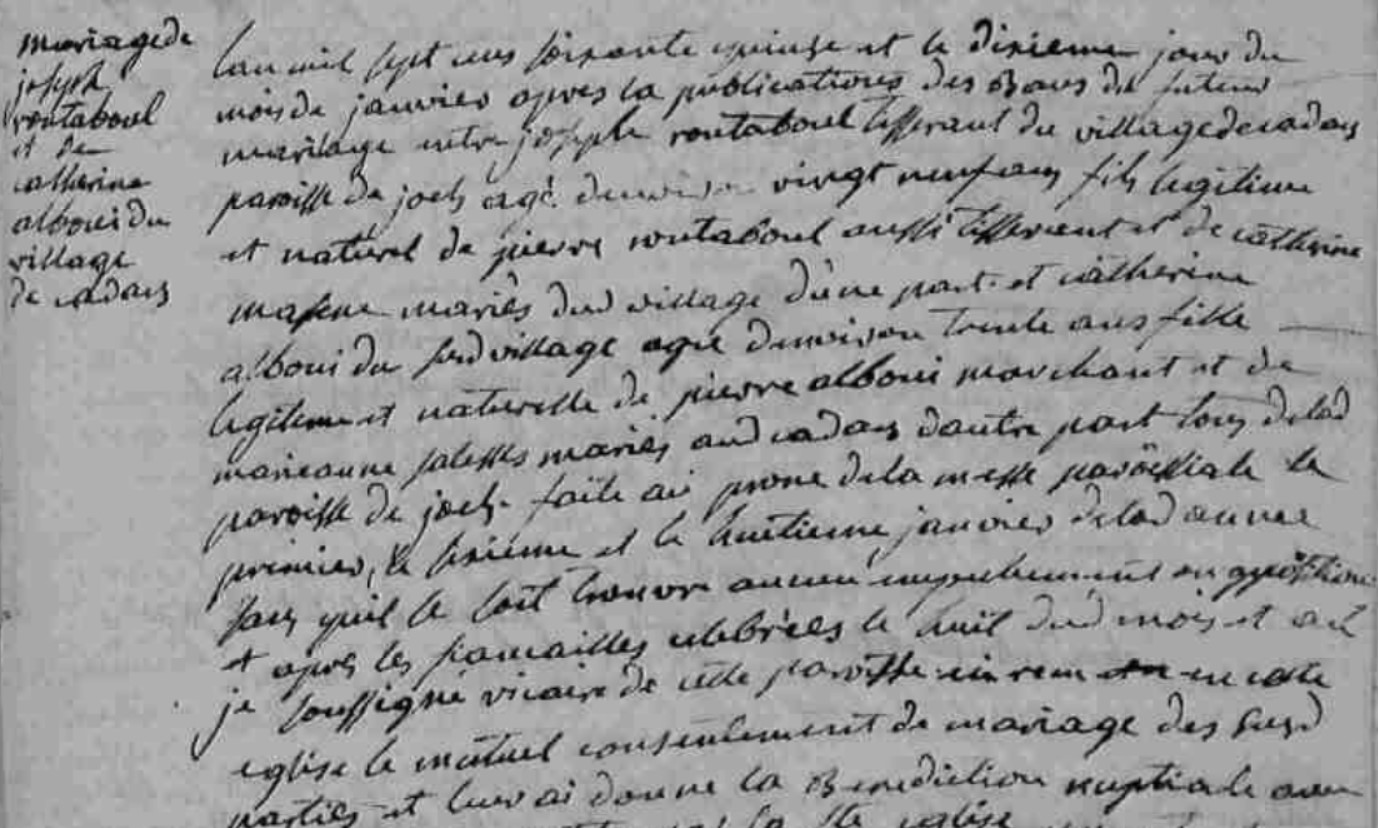 mariage de
joseph
routaboul
et de
catherine
alboui du
village
de cadars
lan mil sept cens soixante quinse et le disieme jour du
mois de janvier apres la publications des Bans du futeur
mariage entre joseph routaboul tisserant du village de cadars
paroisse de joels agé denviron vingt neuf ans fils legitime
et naturel de pierre routaboul aussi tisserent et de catherine
mariés dud village d'une part et catherine
alboui du susd village agee denviron trente ans fille
legitime et naturelle de pierre alboui marchant et de
marieanne mariés aud cadars dautre part tous de lad
paroisse de joels faite au prone de la messe paroissiale le
premier, le sisieme et le huitieme janvier de lad annee
sans quil se soit trouvé aucun empechement ou opposition
et apres les fiancailles celebrées le huit dud mois et an
je soussigné vicaire de cette paroisse ai recu en cete
eglise le mutuel consentement de mariage des susd
parties et leur ai donne la Benediction nuptiale avec
la ste eglise